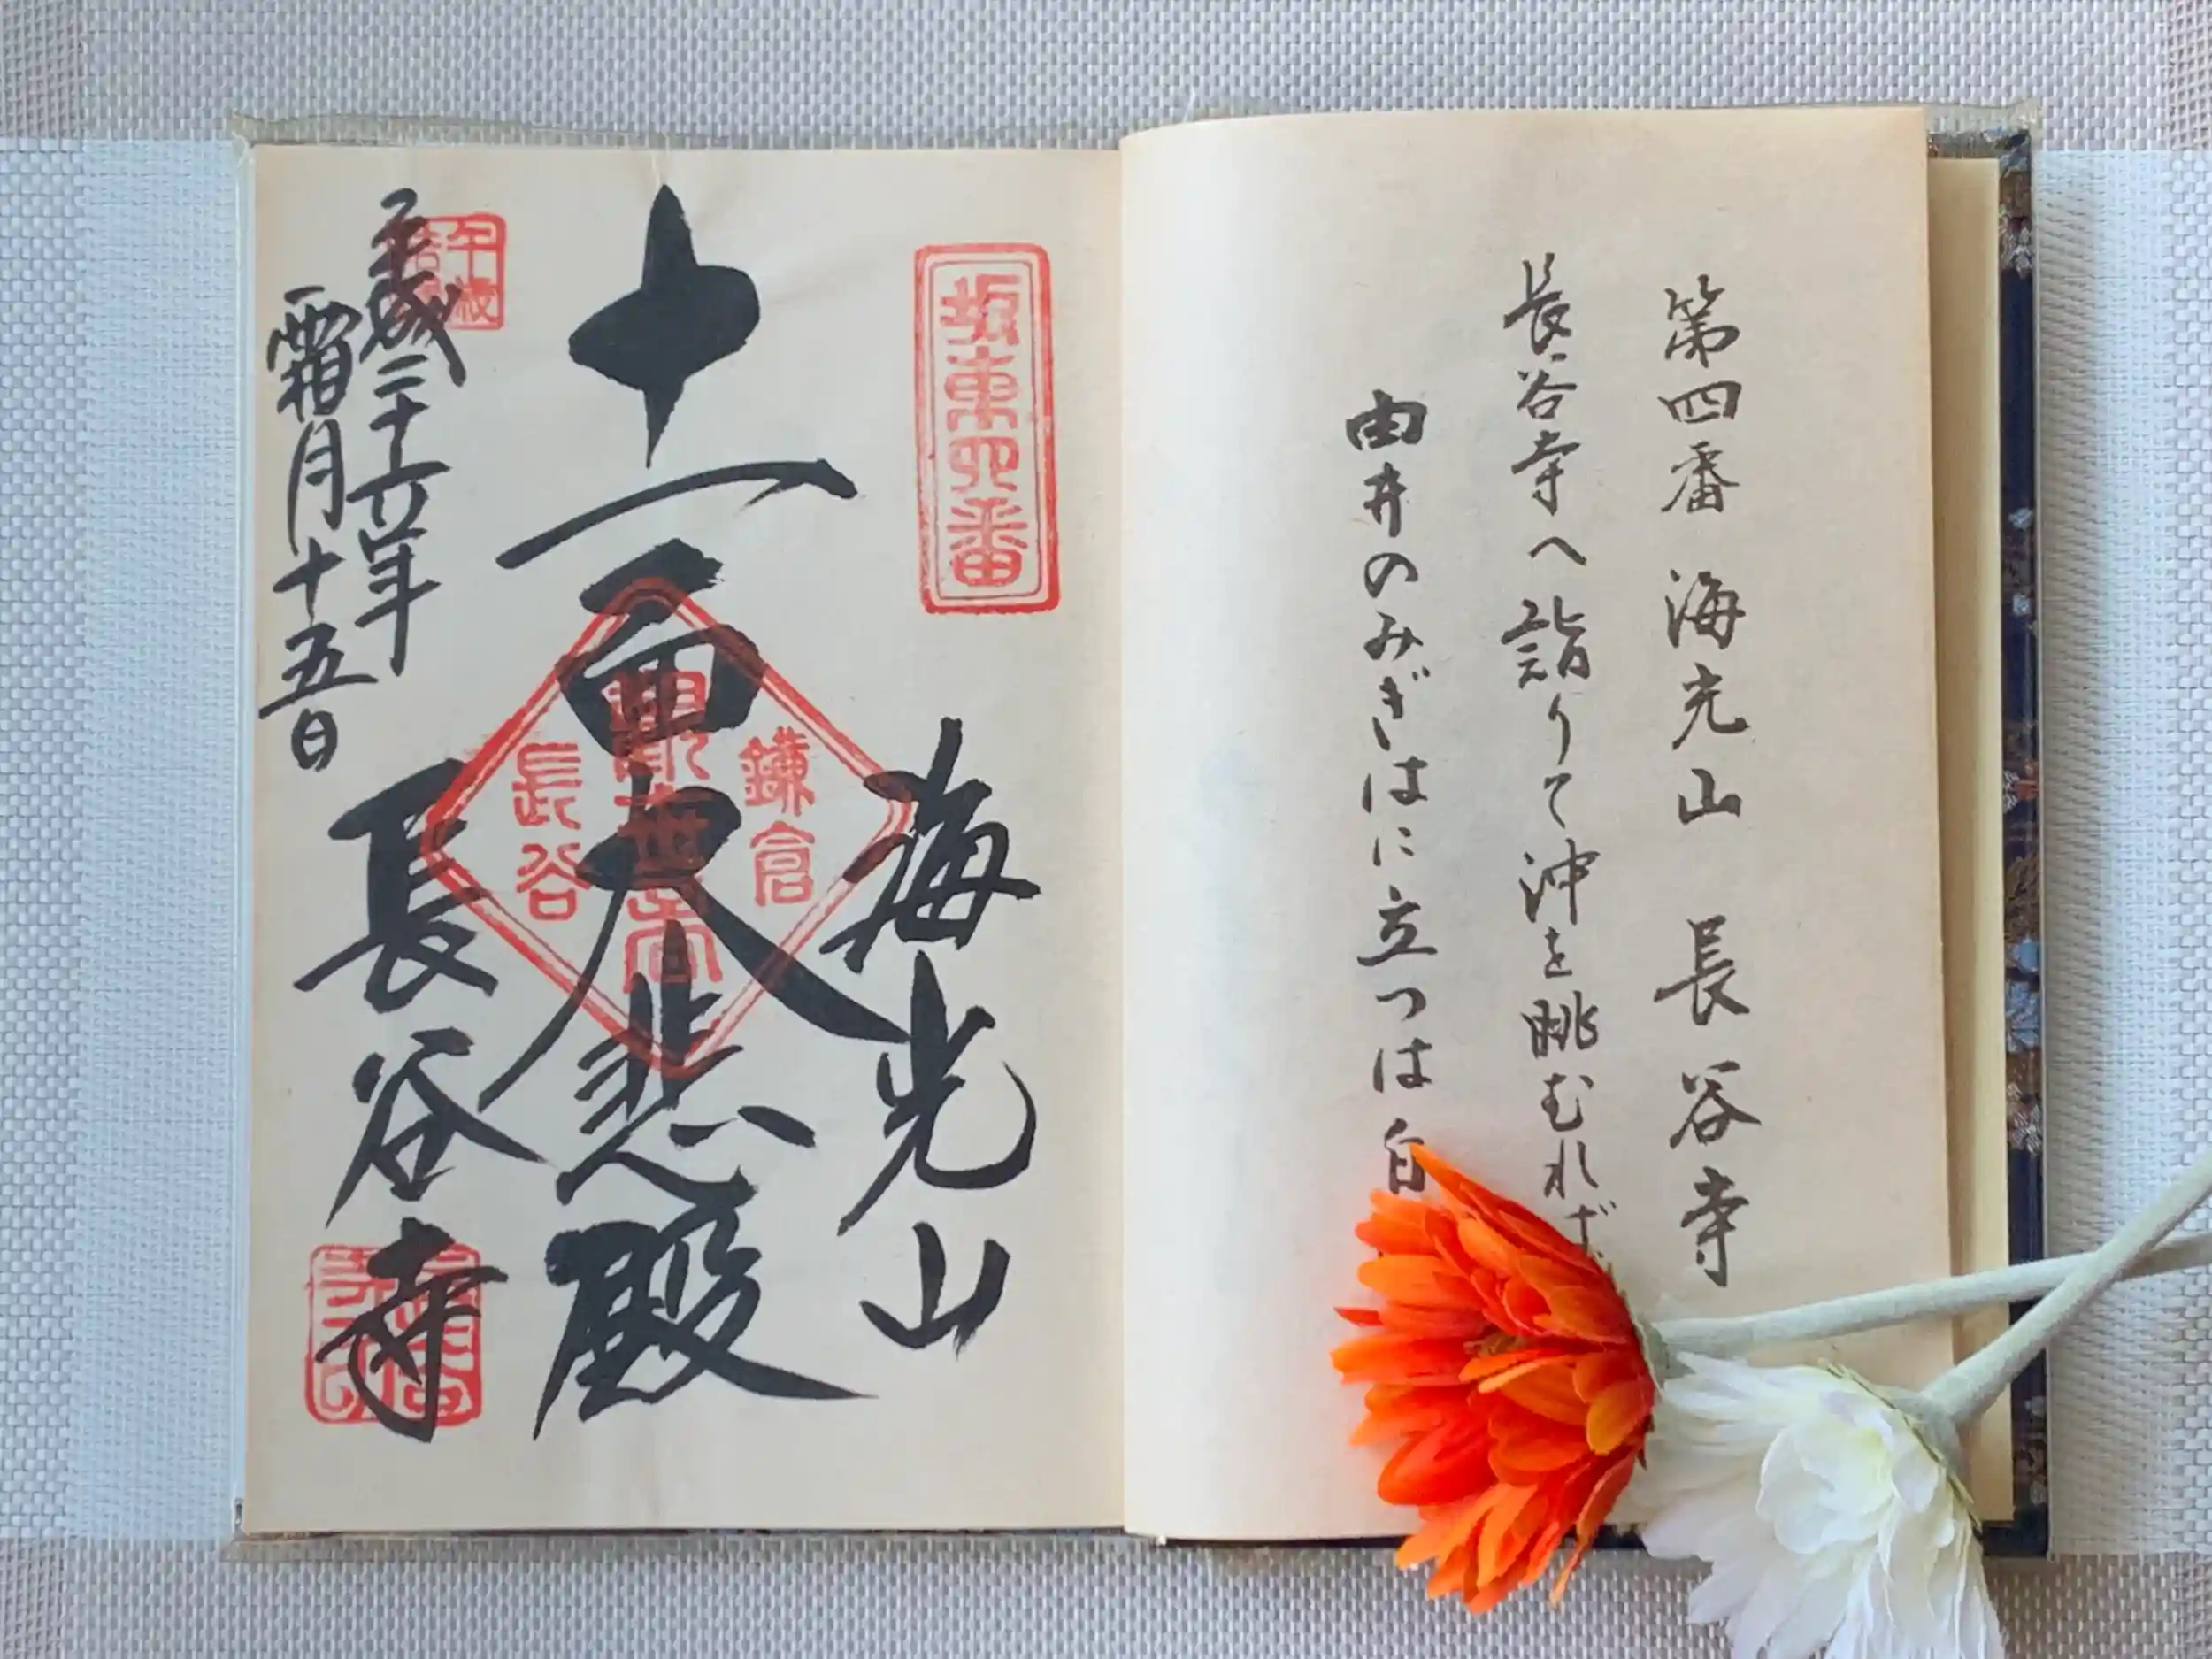 第四番 海光山 長谷寺
長谷寺へ詣りて沖を眺むれば
由井のみぎはに立つは白
坂東四番
海光山
十一面大悲殿
鎌倉
観世音
長谷
平成二十六年
霜月十五日
長谷寺